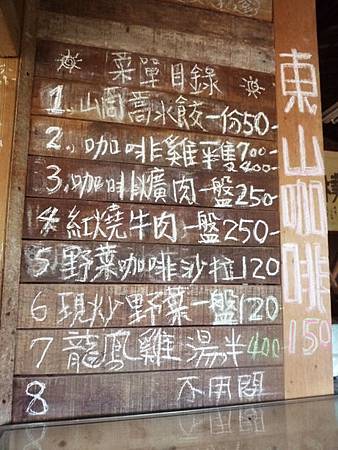 菜單目錄
1. 山茼蒿水餃一份50-
2. 咖啡雞隻700-
400-
3. 咖啡爌肉一盤250-
4 紅燒牛肉一盤250-
5 野菜咖啡沙拉120
6 現炒野菜一盤120
7 龍鳳雞湯半400
8 不用問
東山咖啡
150